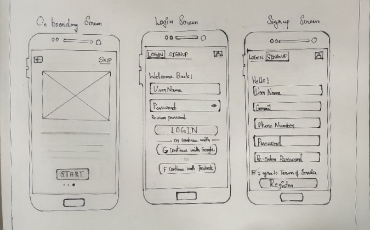 On boarding Screen
SKIP
START
Login Screen
LOGIN SIGNUP
Welcome Back!
User Name
Password
LOGIN
or continue with
G Continue with Google
F Continue with Facebook
Signup Screen
LOGIN SIGNUP
Hello!
User Name
Email
Phone Number
Password
Re-enter Password
Register